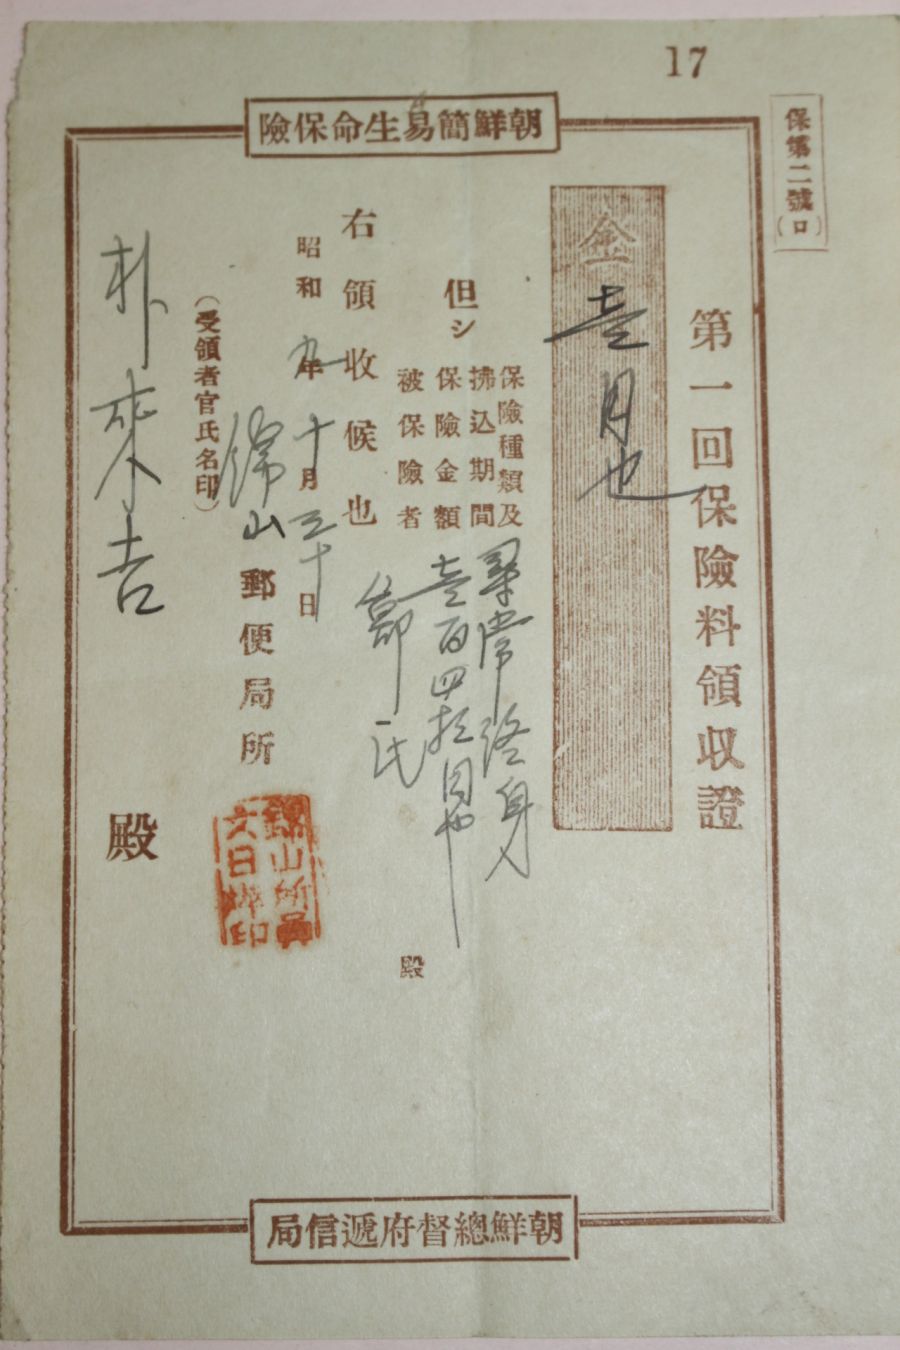 17
保第二號(ロ)
朝鮮簡易生命保險
第一回保險料領収證
金壹円也
但シ
保險種類及
拂込期間
尋常終身
保險金額
壹百四拾円也
被保險者
鄭氏
殿
右領收候也
昭和九年十月三十日
錦山郵便局所
(受領者官氏名印)
錦山所員
朴來吉
殿
朝鮮總督府遞信局